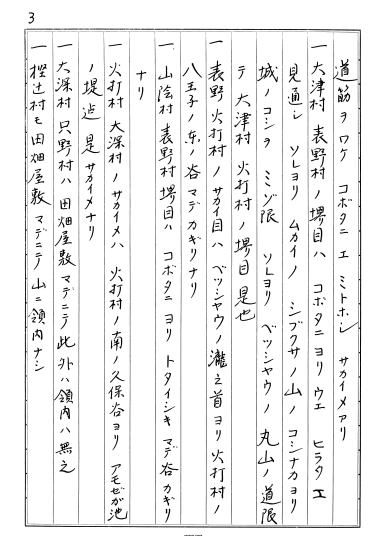 3
道筋ヲワケ コボタニ エ ミトホシ サカイメアリ
一 大津村 表野村ノ堺目ハ コボタニヨリ ウエ ヒラタエ
見通シ ソレヨリ ムカイノ シブクサノ山ノ コシナカヨリ
城ノコシヲ ミゾ限 ソレヨリ ベッシャウノ 丸山ノ道限
テ 大津村 火打村ノ 堺目 是也
一 表野 火打村ノ サカイ目ハ ベッシャウノ瀧之首ヨリ 火打村ノ
八王子ノ 东ノ 谷マデ カギリナリ
一 山陰村 表野村 堺目ハ コボタニ ヨリ トタイシキ マデ 谷カギリ
ナリ
一 火打村 大深村ノ サカイメハ 火打村ノ南ノ久保谷ヨリ アモゼガ池
ノ堤迠 是サカイメナリ
一 大深村 只野村ハ 田畑屋敷マデニテ 此外ハ領内ハ無之
一 樫辻村モ 田畑屋敷 マデニテ 山ニ領内ナシ